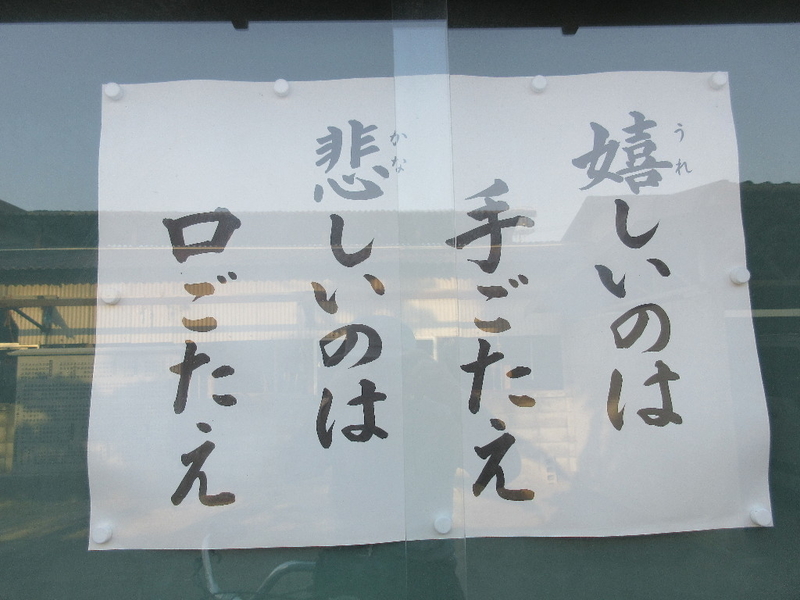 嬉しいのは
うれ
手ごたえ
悲しいのは
かな
口ごたえ